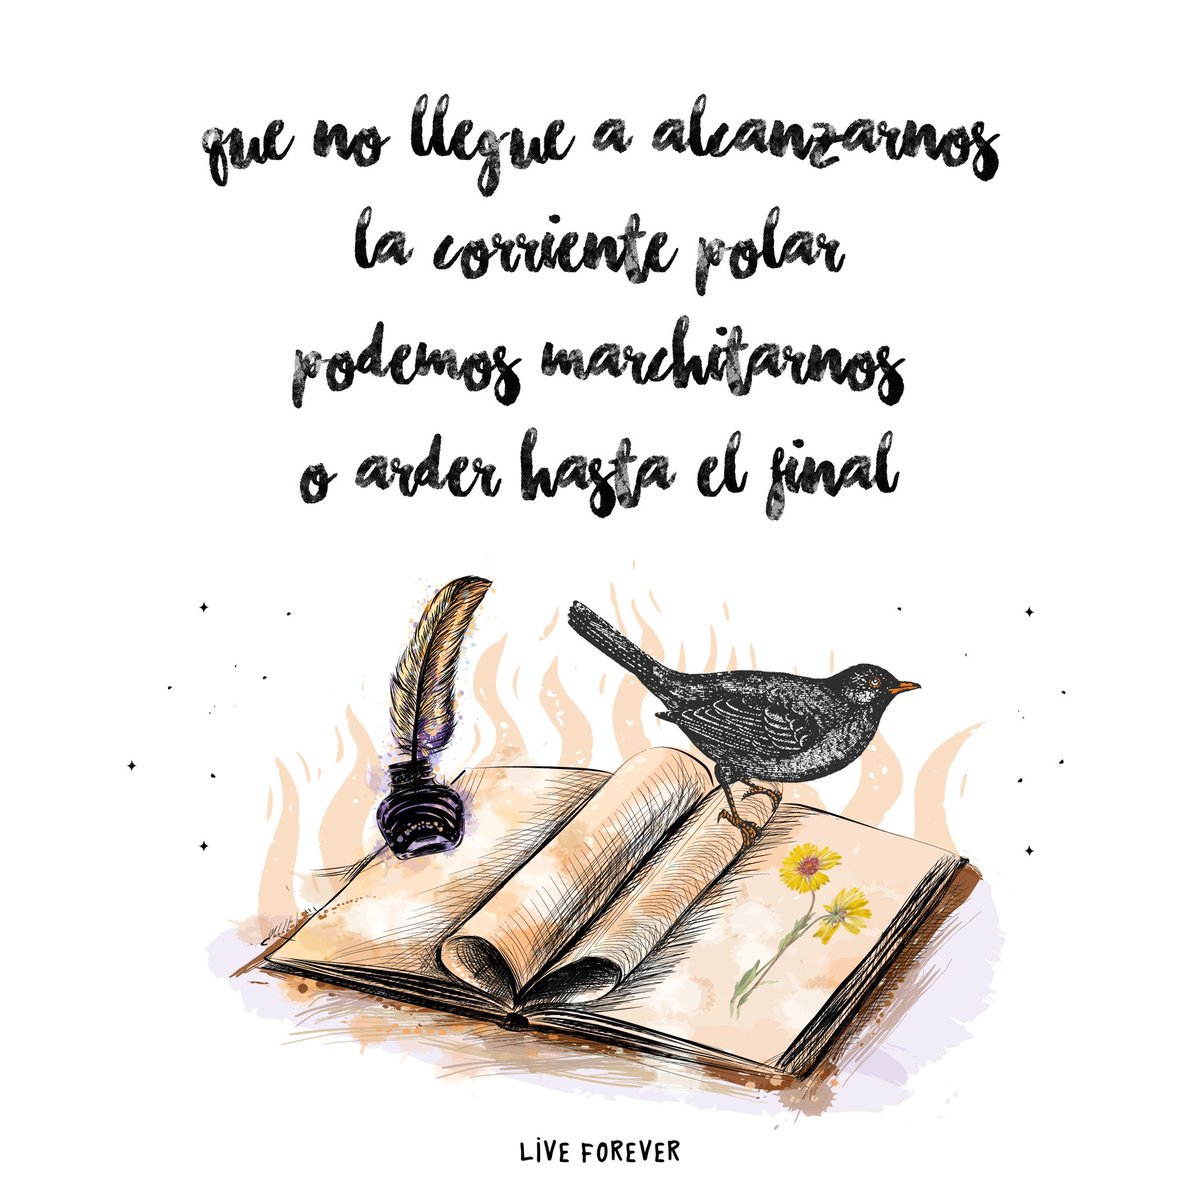 que no llegue a alcanzarnos
la corriente polar
podemos marchitarnos
o arder hasta el final
LIVE FOREVER